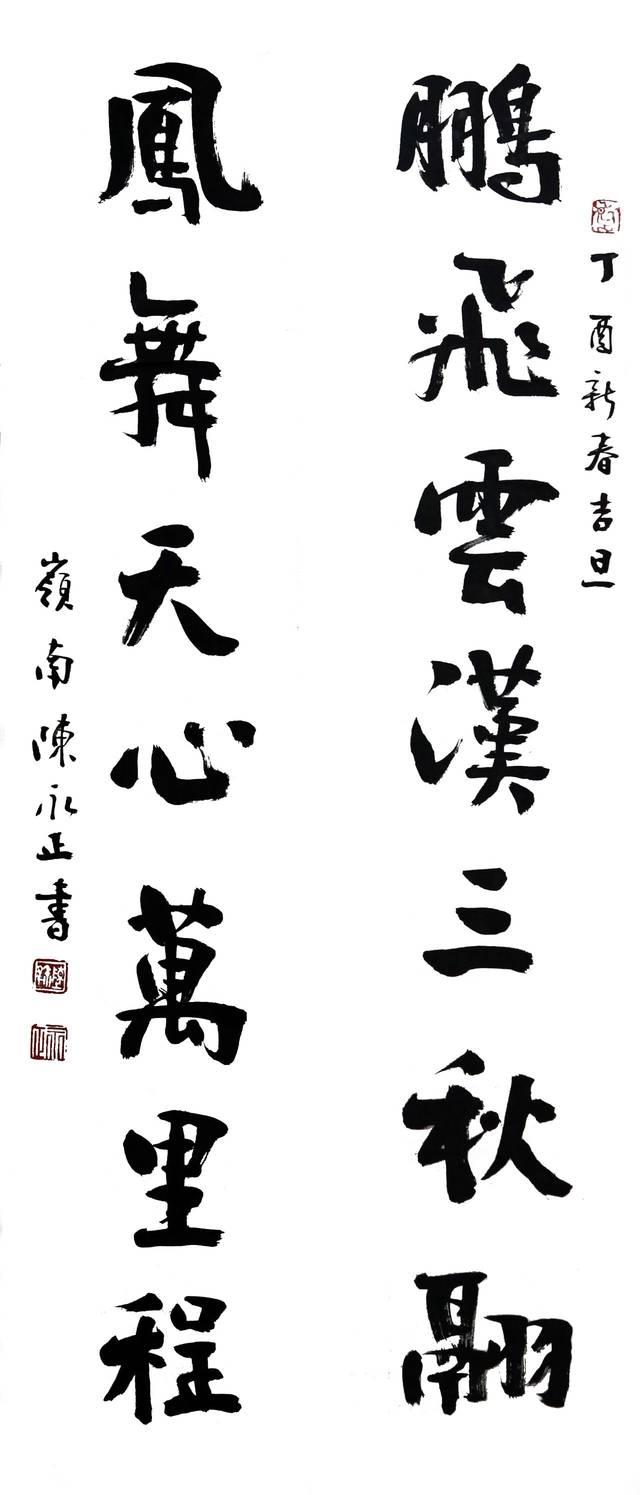 丁酉新春吉旦
鵬飛雲漢三秋翮
鳳舞天心萬里程
嶺南陳永正書